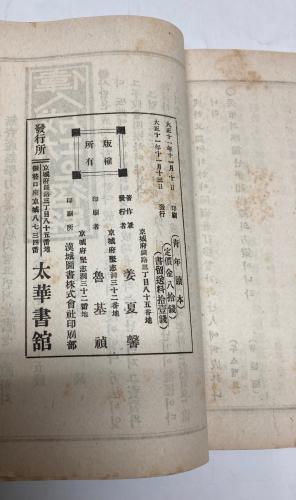 大正十一年十一月十日 印刷
大正十一年十一月十三日 發行
(青年讀本)
(定價金八拾錢)
(書留送料拾壹錢)
京城府鍾路三丁目八十五番地
著作兼
發行者 姜夏馨
京城府堅志洞三十二番地
印刷者 魯基禎
京城府堅志洞三十二番地
印刷所 漢城圖書株式會社印刷部
版權
所有
發行所
京城府鍾路三丁目八十五番地
振替口座京城八七三四番
太華書館